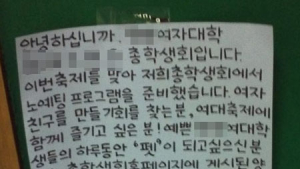 안녕하십니까. 여자대학
총학생회입니다.
이번축제를 맞아 저희총학생회에서
노예팅 프로그램을 준비했습니다. 여자
친구를 만들기회를 찾는분, 여대축제에
함께 즐기고 싶은분! 예쁜 여대학
생들의 하루동안 '펫'이 되고싶으신분
총학생회홈페이지에 게시된양